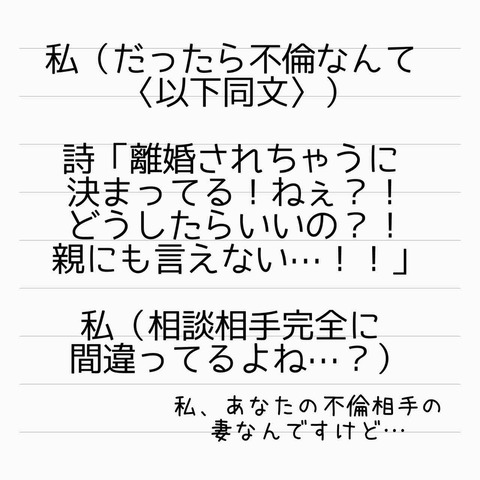 私（だったら不倫なんて
〈以下同文〉）
詩「離婚されちゃうに
決まってる！ねぇ？！
どうしたらいいの？！
親にも言えない…！！」
私（相談相手完全に
間違ってるよね…？）
私、あなたの不倫相手の
妻なんですけど…